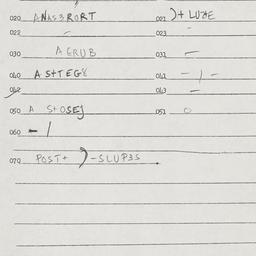 020 ANAS3RORT 021 )+ LUZE
022 023
030 AGRUB 031
040 A S+TEG8 041 - / -
042 043 -
050 A S+OSEJ 051 O
060 - /
070 POST+ )-SLUP3S.